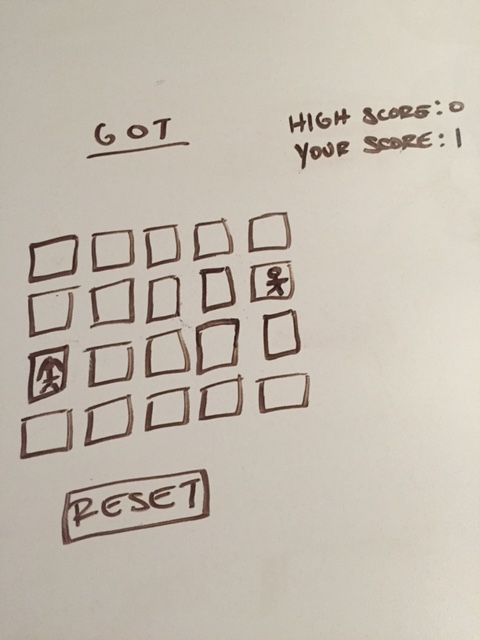 GOT
HIGH SCORE: 0
YOUR SCORE: 1
RESET